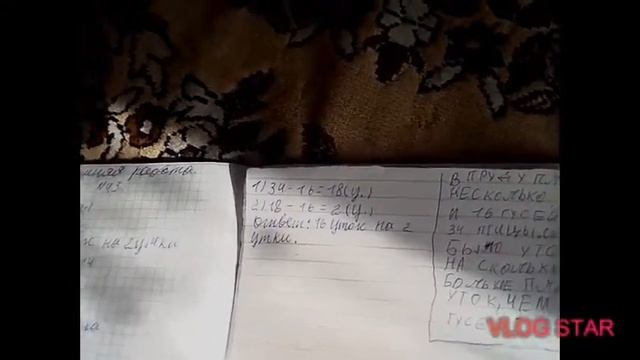 няя работа.
№13
ж на 2 утки
1) 34-16=18(у.)
2) 18-16=2(у.)
ответ: 16 уток на 2
утки.
В ПРУДУ ПЛ
НЕСКОЛЬКО
И 16 ГУСЕЙ
34 ПТИЦЫ.
БЫЛО УТО
НА СКОЛЬК
БОЛЬШЕ ПЛ
УТОК, ЧЕМ
ГУСЕ
VLOG STAR